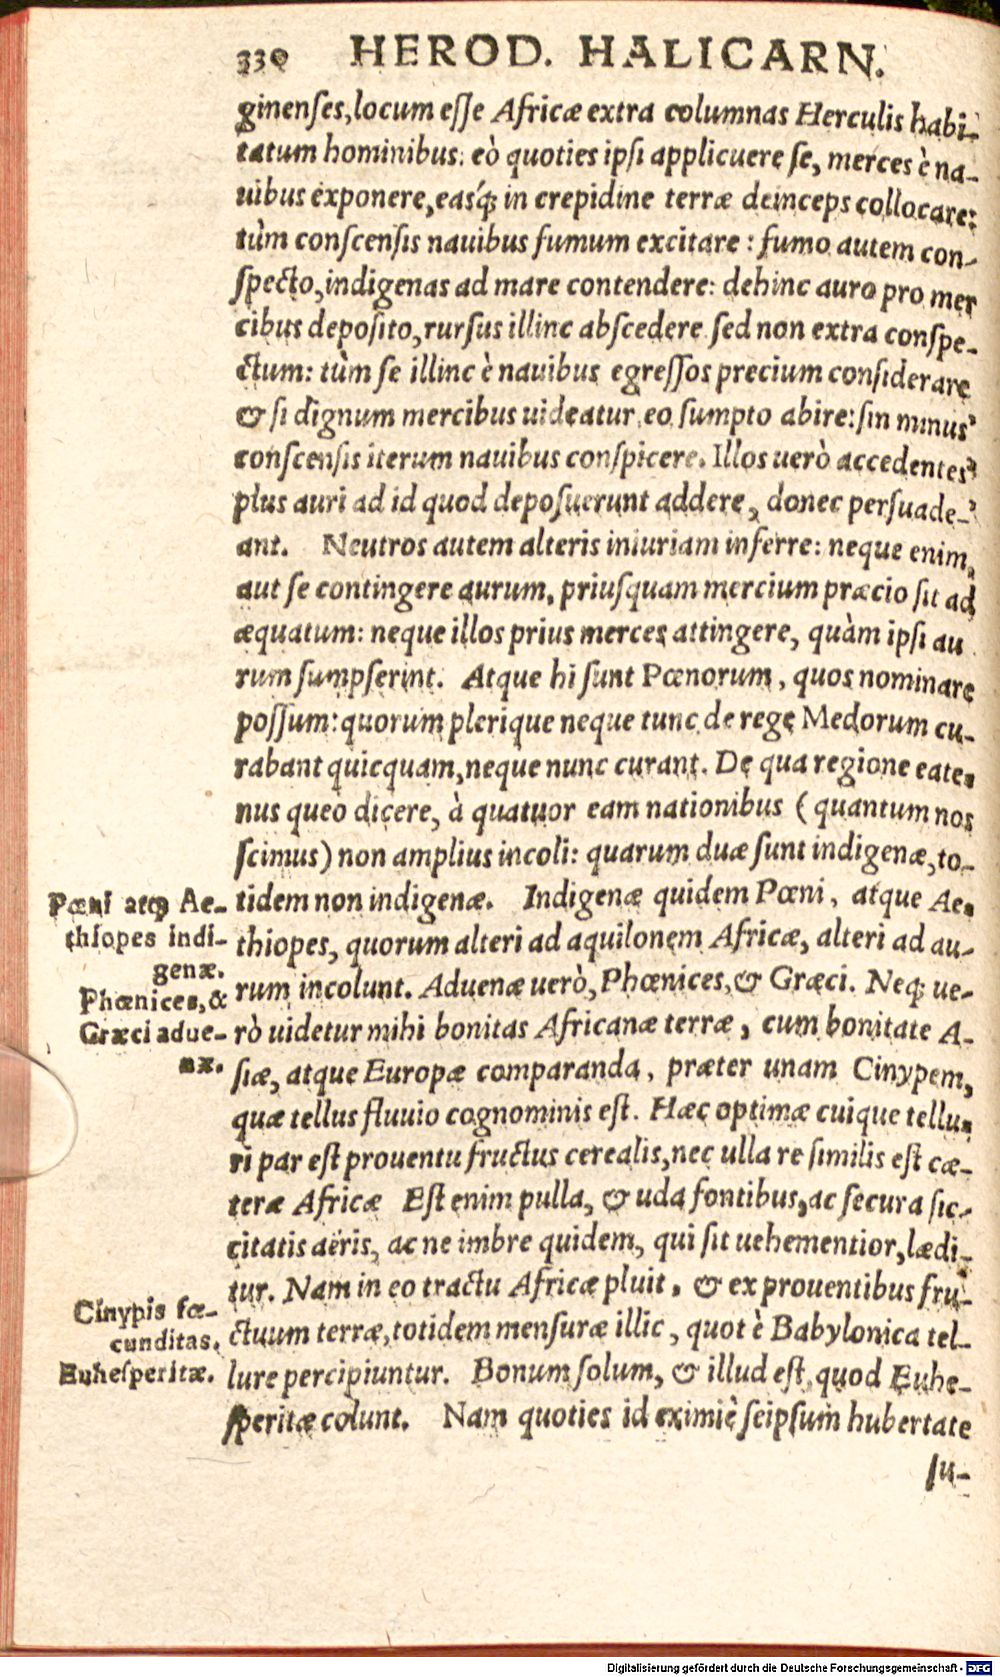 330 HEROD. HALICARN.
ginenſes, locum eſſe Africæ extra columnas Herculis habi-
tatum hominibus: eò quoties ipſi applicuere ſe, merces è na-
uibus exponere, easq́; in crepidine terræ deinceps collocare:
tùm conſcenſis nauibus fumum excitare: fumo autem con-
ſpecto, indigenas ad mare contendere: dehinc auro pro mer
cibus depoſito, rurſus illinc abſcedere ſed non extra conſpe-
ctum: tùm ſe illinc è nauibus egreſſos precium conſiderare
& ſi dignum mercibus uideatur, eo ſumpto abire: ſin minus
conſcenſis iterum nauibus conſpicere. Illos uerò accedentes
plus auri ad id quod depoſuerunt addere, donec perſuade-
ant. Neutros autem alteris iniuriam inferre: neque enim
aut ſe contingere aurum, priuſquam mercium præcio ſit ad
æquatum: neque illos prius merces attingere, quàm ipſi au
rum ſumpſerint. Atque hi ſunt Pœnorum, quos nominare
poſſum: quorum plerique neque tunc de rege Medorum cu-
rabant quicquam, neque nunc curant. De qua regione eate-
nus queo dicere, à quatuor eam nationibus (quantum nos
ſcimus) non amplius incoli: quarum duæ ſunt indigenæ, to-
tidem non indigenæ. Indigenæ quidem Pœni, atque Ae-
thiopes, quorum alteri ad aquilonem Africæ, alteri ad au-
rum incolunt. Aduenæ uerò, Phœnices, & Græci. Neq; ue-
rò uidetur mihi bonitas Africanæ terræ, cum bonitate A-
ſiæ, atque Europæ comparanda, præter unam Cinypem,
quæ tellus fluuio cognominis eſt. Hæc optimæ cuique tellu-
ri par eſt prouentu fructus cerealis, nec ulla re ſimilis eſt cæ-
teræ Africæ Eſt enim pulla, & uda fontibus, ac ſecura ſic-
citatis aëris, ac ne imbre quidem, qui ſit uehementior, lædi-
tur. Nam in eo tractu Africæ pluit, & ex prouentibus fru-
ctuum terræ, totidem menſuræ illic, quot è Babylonica tel-
lure percipiuntur. Bonum ſolum, & illud eſt, quod Euhe-
ſperitæ colunt. Nam quoties id eximiè ſeipſum hubertate
ſu-
Pœni atq; Ae-
thiopes indi-
genæ.
Phœnices, &
Græci adue-
næ.
Cinypis fœ-
cunditas.
Euheſperitæ.
Digitalisierung gefördert durch die Deutsche Forschungsgemeinschaft - DFG